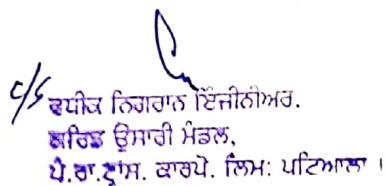 c/s ਵਧੀਕ ਨਿਗਰਾਨ ਇੰਜੀਨੀਅਰ.
ਗਰਿਡ ਉਸਾਰੀ ਮੰਡਲ,
ਪੰ.ਰਾ.ਟ੍ਰਾਂਸ. ਕਾਰਪੋ. ਲਿਮ: ਪਟਿਆਲਾ ।